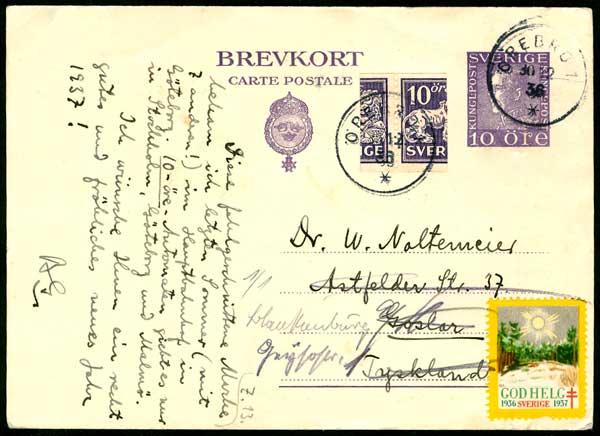 BREVKORT
CARTE POSTALE
KUNGL. POST
SVERIGE
10 ÖRE
ÖREBRO 1
30 12
36
10 ÖR
GE
SVER
ÖREBRO
12
36
Diese fehlgeschnittene Marke
bekam ich letzten Sommer (mit
7 andren!) im Hauptbahnhof in
Göteborg. 10-öre-Automaten gibt es nur
in Stockholm, Göteborg und Malmö.
Ich wünsche Ihnen ein recht
gutes und fröhliches neues Jahr
1937!
Dr. W. Noltemeier
Astfelder Str. 37.
Goslar
Tyskland
1/1
Blankenburg
GOD HELG
1936 SVERIGE 1937